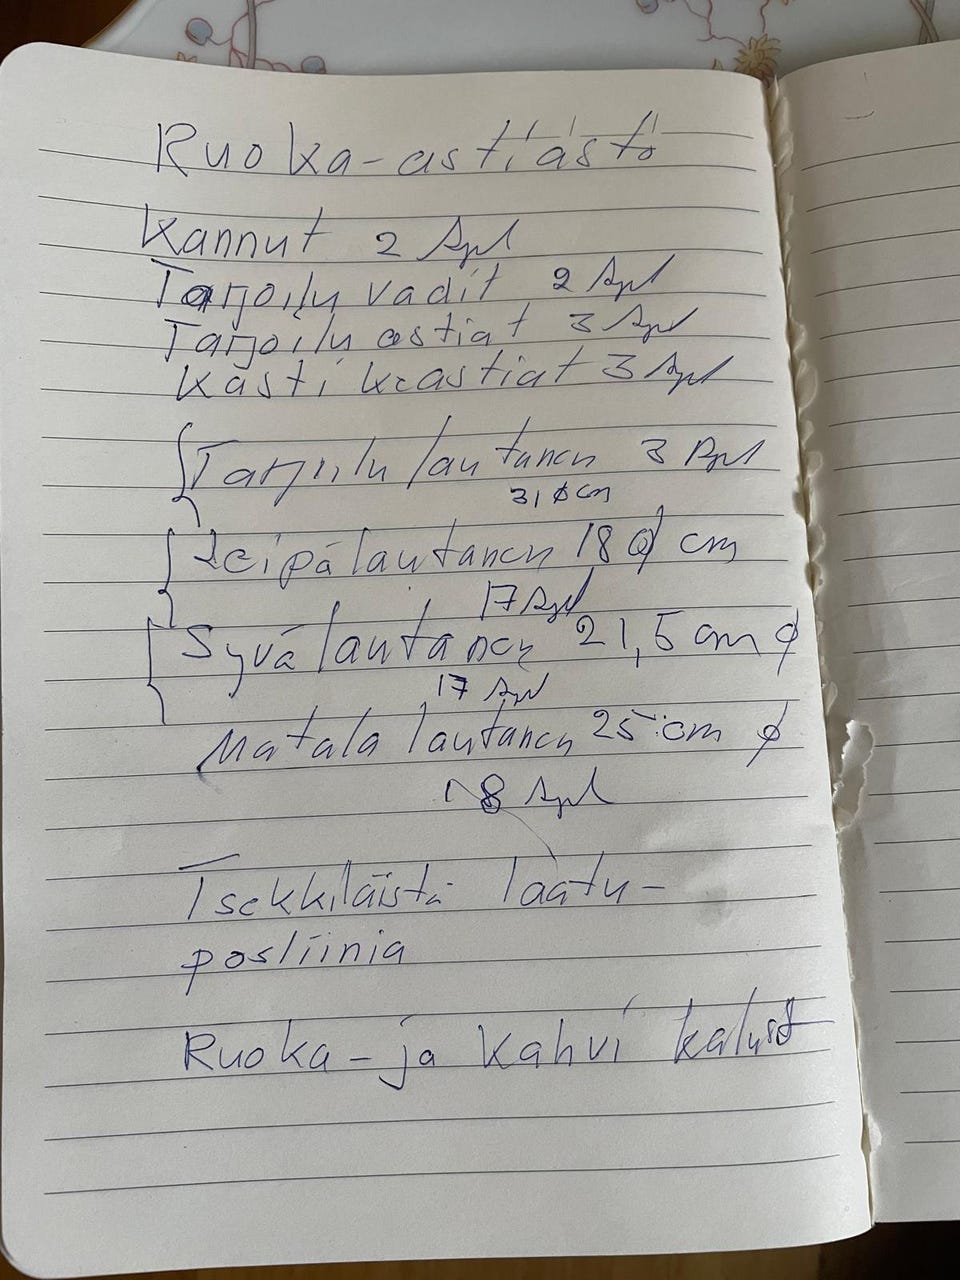 Ruoka-astiasto
Kannut 2 kpl
Tarjoilu vadit 2 kpl
Tarjoilu astiat 3 kpl
Kasti keastiat 3 kpl
Tarjoilu lautanen 3 kpl
31 ø cm
Leipä lautanen 18 ø cm
17 kpl
Syvä lautanen 21,5 cm ø
17 kpl
Matala lautanen 25 cm ø
18 kpl
Tsekkiläistä laatu-
posliinia
Ruoka- ja Kahvi kalusto